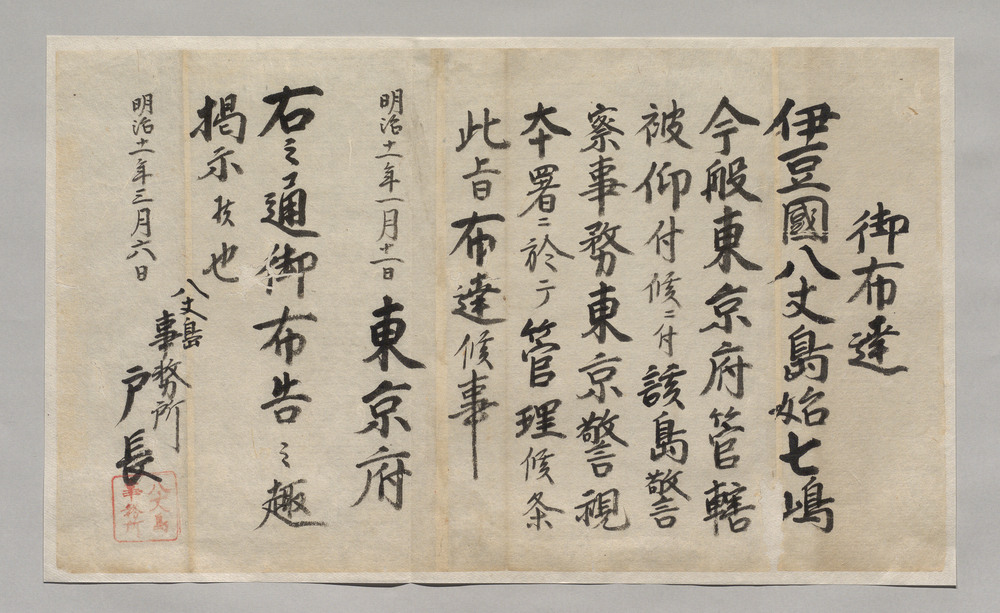 御布達
伊豆國八丈島始七嶋
今般東京府管轄
被仰付候ニ付該島警
察事務東京警視
本署ニ於テ管理候条
此旨布達候事
明治十一年一月十一日
東京府
右之通御布告之趣
掲示候也
明治十一年三月六日
八丈島
事務所
戸長
八丈島
事務所